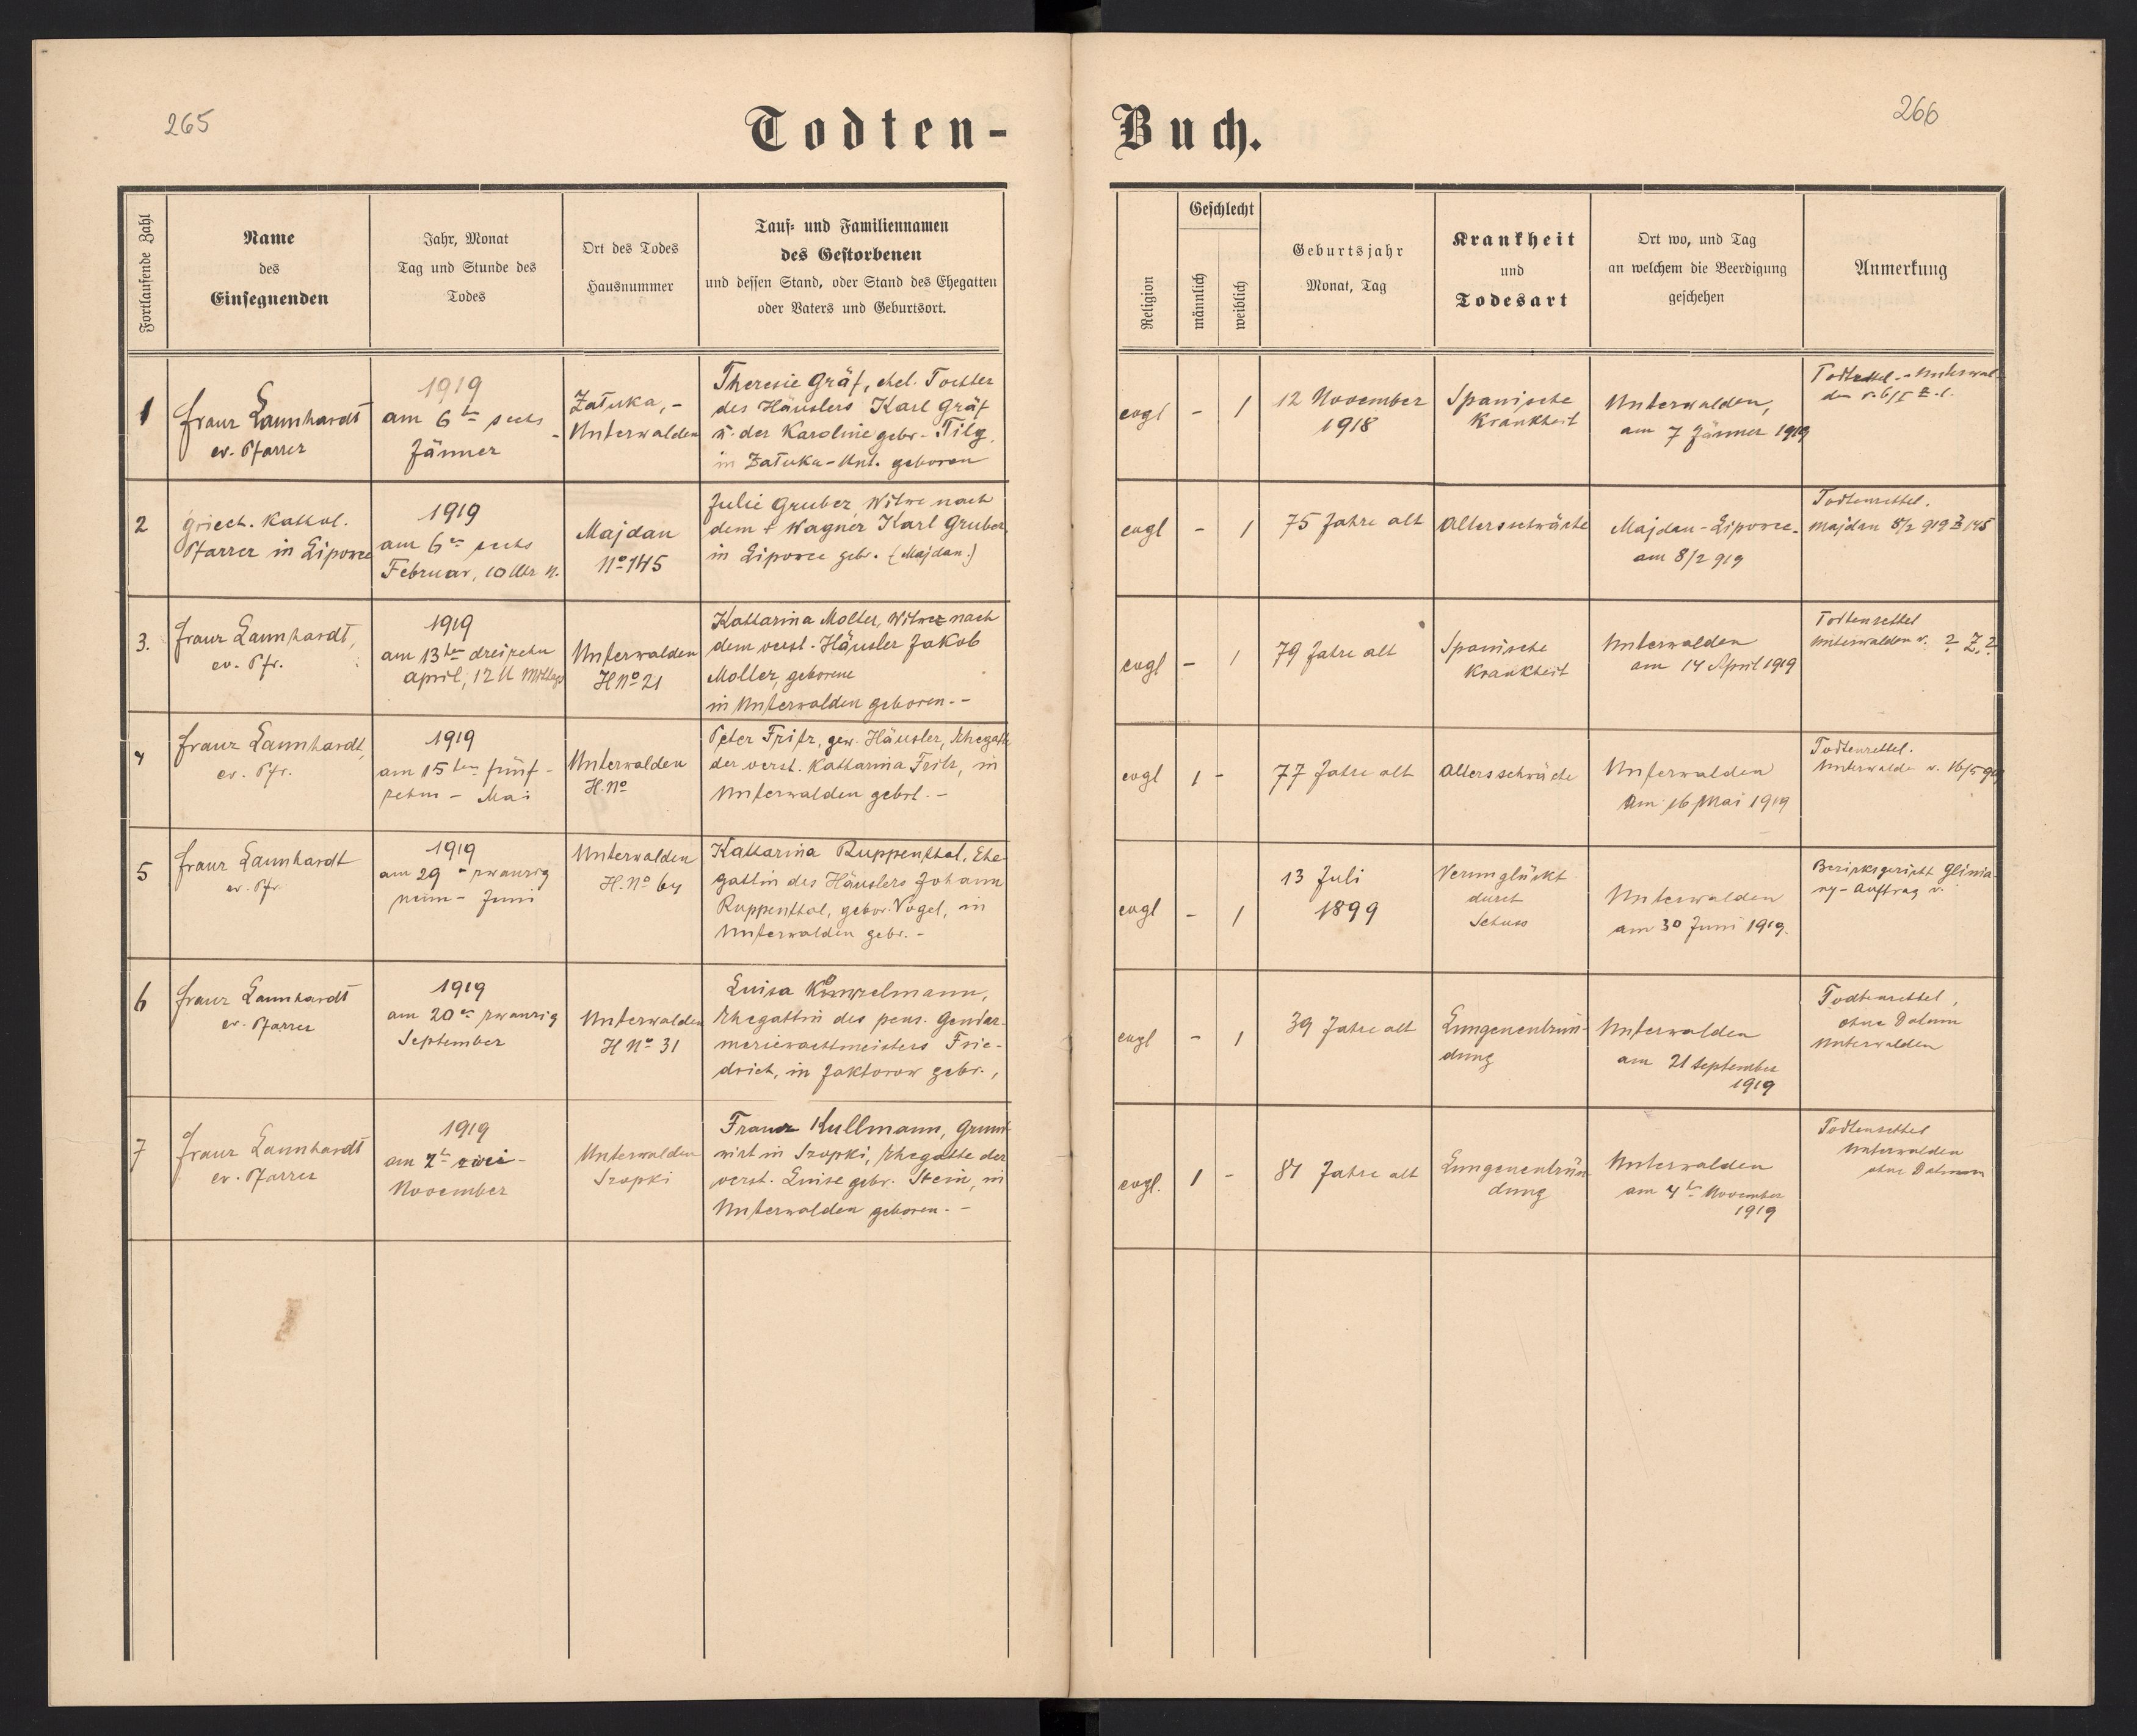 265
Todten-
Buch.
266
Fortlaufende Zahl
Name
des
Einsegnenden
Jahr, Monat
Tag und Stunde des
Todes
Ort des Todes
Hausnummer
Tauf- und Familiennamen
des Gestorbenen
und dessen Stand, oder Stand des Ehegatten
oder Vaters und Geburtsort.
Religion
Geschlecht
männlich
weiblich
Geburtsjahr
Monat, Tag
Krankheit
und
Todesart
Ort wo, und Tag
an welchem die Beerdigung
geschehen
Anmerkung
1
Franz Launhardt
ev. Pfarrer
1919
am 6ten sechs
Jänner
Załuka, -
Unterwalden
Theresie Gräf, ehel. Tochter
des Häuslers Karl Gräf
u. der Karoline gebr. Tilg,
in Załuka-Unt. geboren
evgl
-
1
12 November
1918
Spanische
Krankheit
Unterwalden,
am 7 Jänner 1919
Unterwal-
den v. 6/I
2
griech. kathol.
Pfarrer in Lipowce
1919
am 6ten sechs
Februar, 10 Uhr n.
Majdan
No 145
Julie Gruber, Witwe nach
dem † Wagner Karl Gruber,
in Lipowce gebr. (Majdan.)
evgl
-
1
75 Jahre alt
Altersschwäche
Majdan-Lipowce-
am 8/2 919
Todtenzettel.
Majdan 8/2 919 Z 145
3.
Franz Launhardt,
ev. Pfr.
1919
am 13ten dreizehn
April, 12 U Mittags
Unterwalden
H No 21
Katharina Moller, Witwe nach
dem verst. Häusler Jakob
Moller, geborene
in Unterwalden geboren. -
evgl
-
1
79 Jahre alt
Spanische
Krankheit
Unterwalden
am 14 April 1919
Todtenzettel
Unterwalden v. ? Z. ?
4
Franz Launhardt,
ev. Pfr.
1919
am 15ten fünf-
zehn - Mai
Unterwalden
H. No
Peter Fritz, gew. Häusler, Ehegatte
der verst. Katharina Fritz, in
Unterwalden gebrt. -
evgl
1
-
77 Jahre alt
Altersschwäche
Unterwalden
am 16 Mai 1919
Todtenzettel.
Unterwalde v. 16/5 919
5
Franz Launhardt
ev. Pfr.
1919
am 29 - zwanzig
neun - Juni
Unterwalden
H. No 64
Katharina Ruppenthal, Ehe-
gattin des Häuslers Johann
Ruppenthal, gebor. Vogel, in
Unterwalden gebr. -
evgl
-
1
13 Juli
1899
Verunglückt
durch
Schuss
Unterwalden
am 30 Juni 1919.
Bezirksgericht Glinia-
ny - Auftrag v.
6
Franz Launhardt
ev. Pfarrer
1919
am 20ten zwanzig
September
Unterwalden
H No 31
Luisa
Ehegattin des pens. Gendar-
meriewachtmeisters Frie-
drich, in Jaktorow gebr.,
evgl
-
1
39 Jahre alt
Lungenentzün-
dung
Unterwalden
am 21 September
1919
Todtenzettel,
ohne Datum
Unterwalden
7
Franz Launhardt
ev. Pfarrer
1919
am 2ten zwei -
November
Unterwalden
Szopki
Franz Kullmann, Grund-
wirt in Szopki, Ehegatte der
verst. Luise gebr. Stein, in
Unterwalden geboren. -
evgl.
1
-
81 Jahre alt
Lungenentzün-
dung
Unterwalden
am 4ten November
1919
Todtenzettel
Unterwalden
ohne Datum